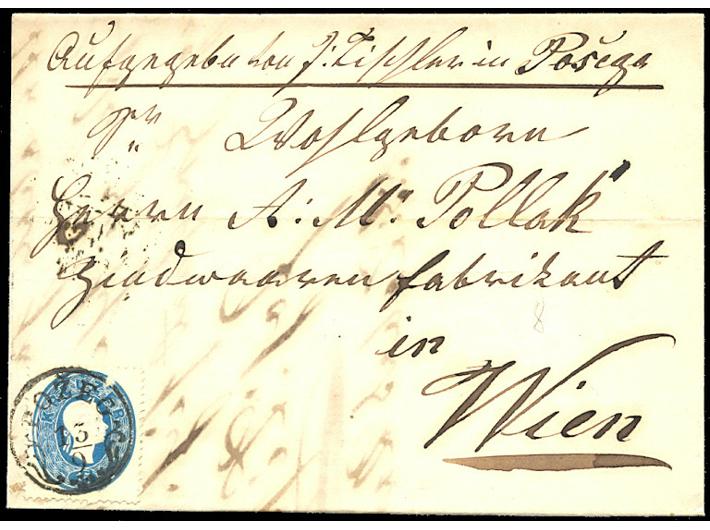 Aufgegeben von J: Tischler in Požega
Sr Wohlgeborn
Herrn A: M: Pollak
Zündwaaren fabrikant
in
Wien
8
POZEGA
13
9